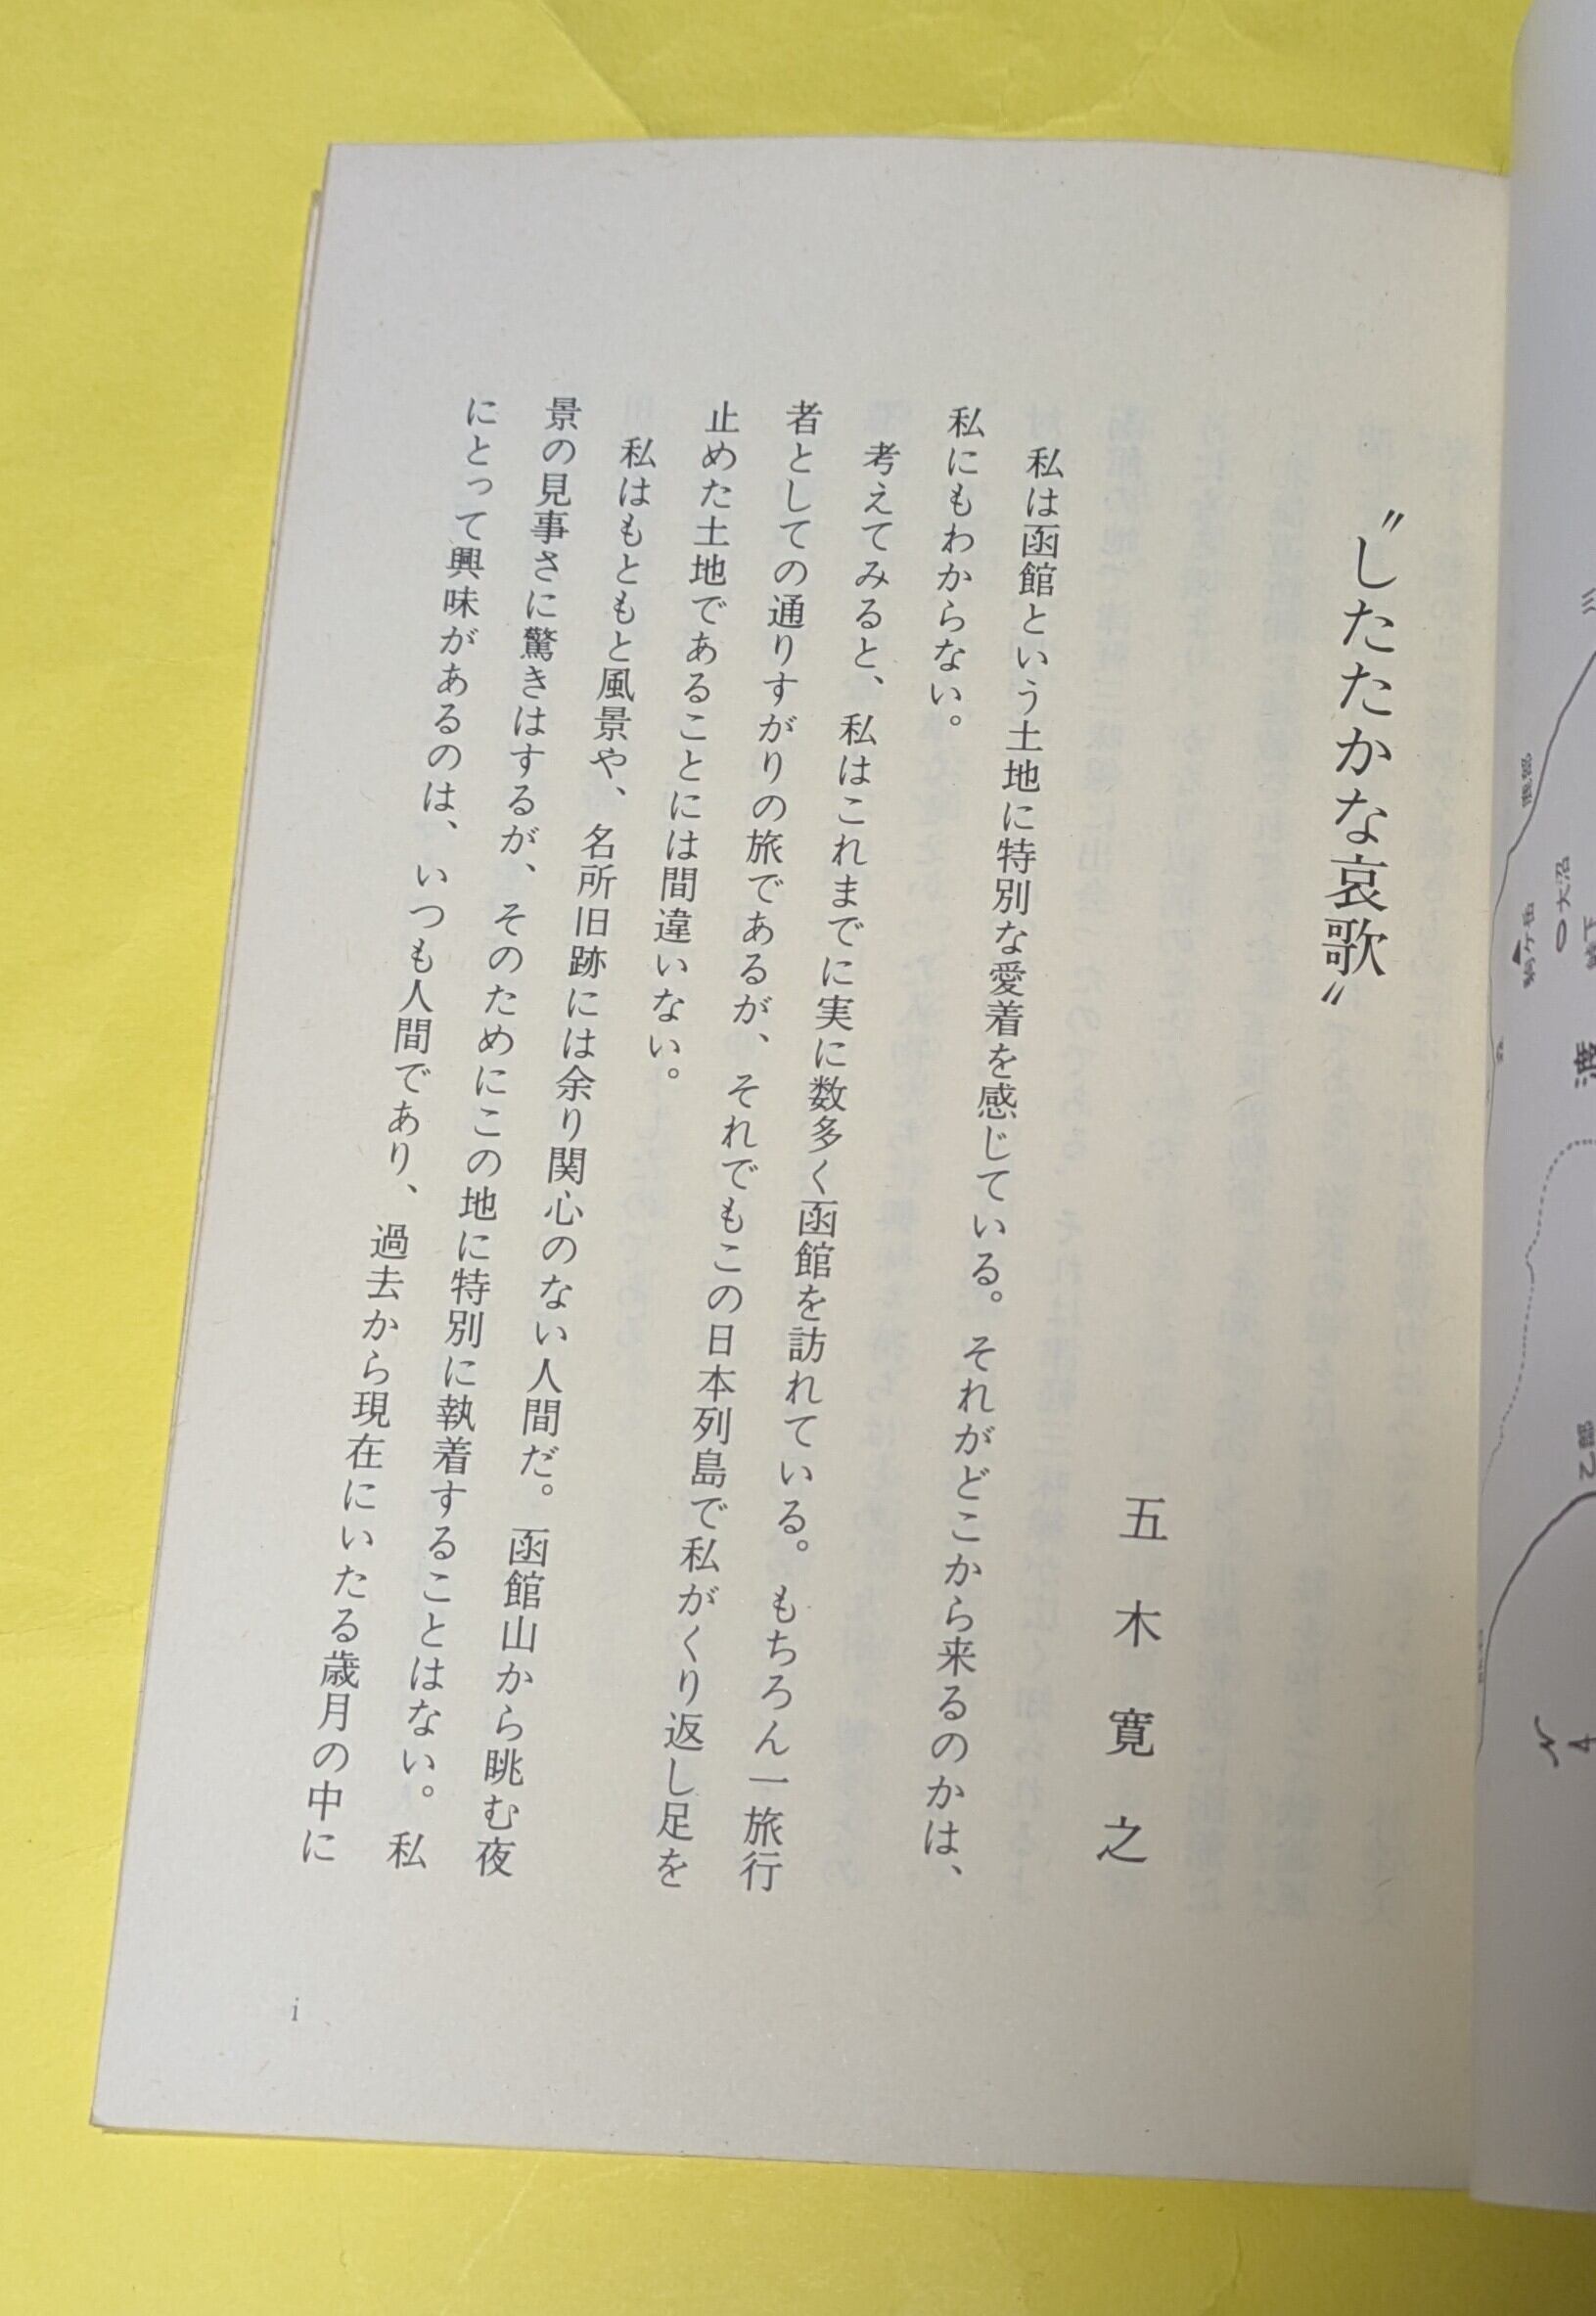 〝したたかな哀歌〟
五木寛之
私は函館という土地に特別な愛着を感じている。それがどこから来るのかは、
私にもわからない。
考えてみると、私はこれまでに実に数多く函館を訪れている。もちろん一旅行
者としての通りすがりの旅であるが、それでもこの日本列島で私がくり返し足を
止めた土地であることには間違いない。
私はもともと風景や、名所旧跡には余り関心のない人間だ。函館山から眺む夜
景の見事さに驚きはするが、そのためにこの地に特別に執着することはない。私
にとって興味があるのは、いつも人間であり、過去から現在にいたる歳月の中に
i
鹿部
駒ケ岳
大沼
森
乙部